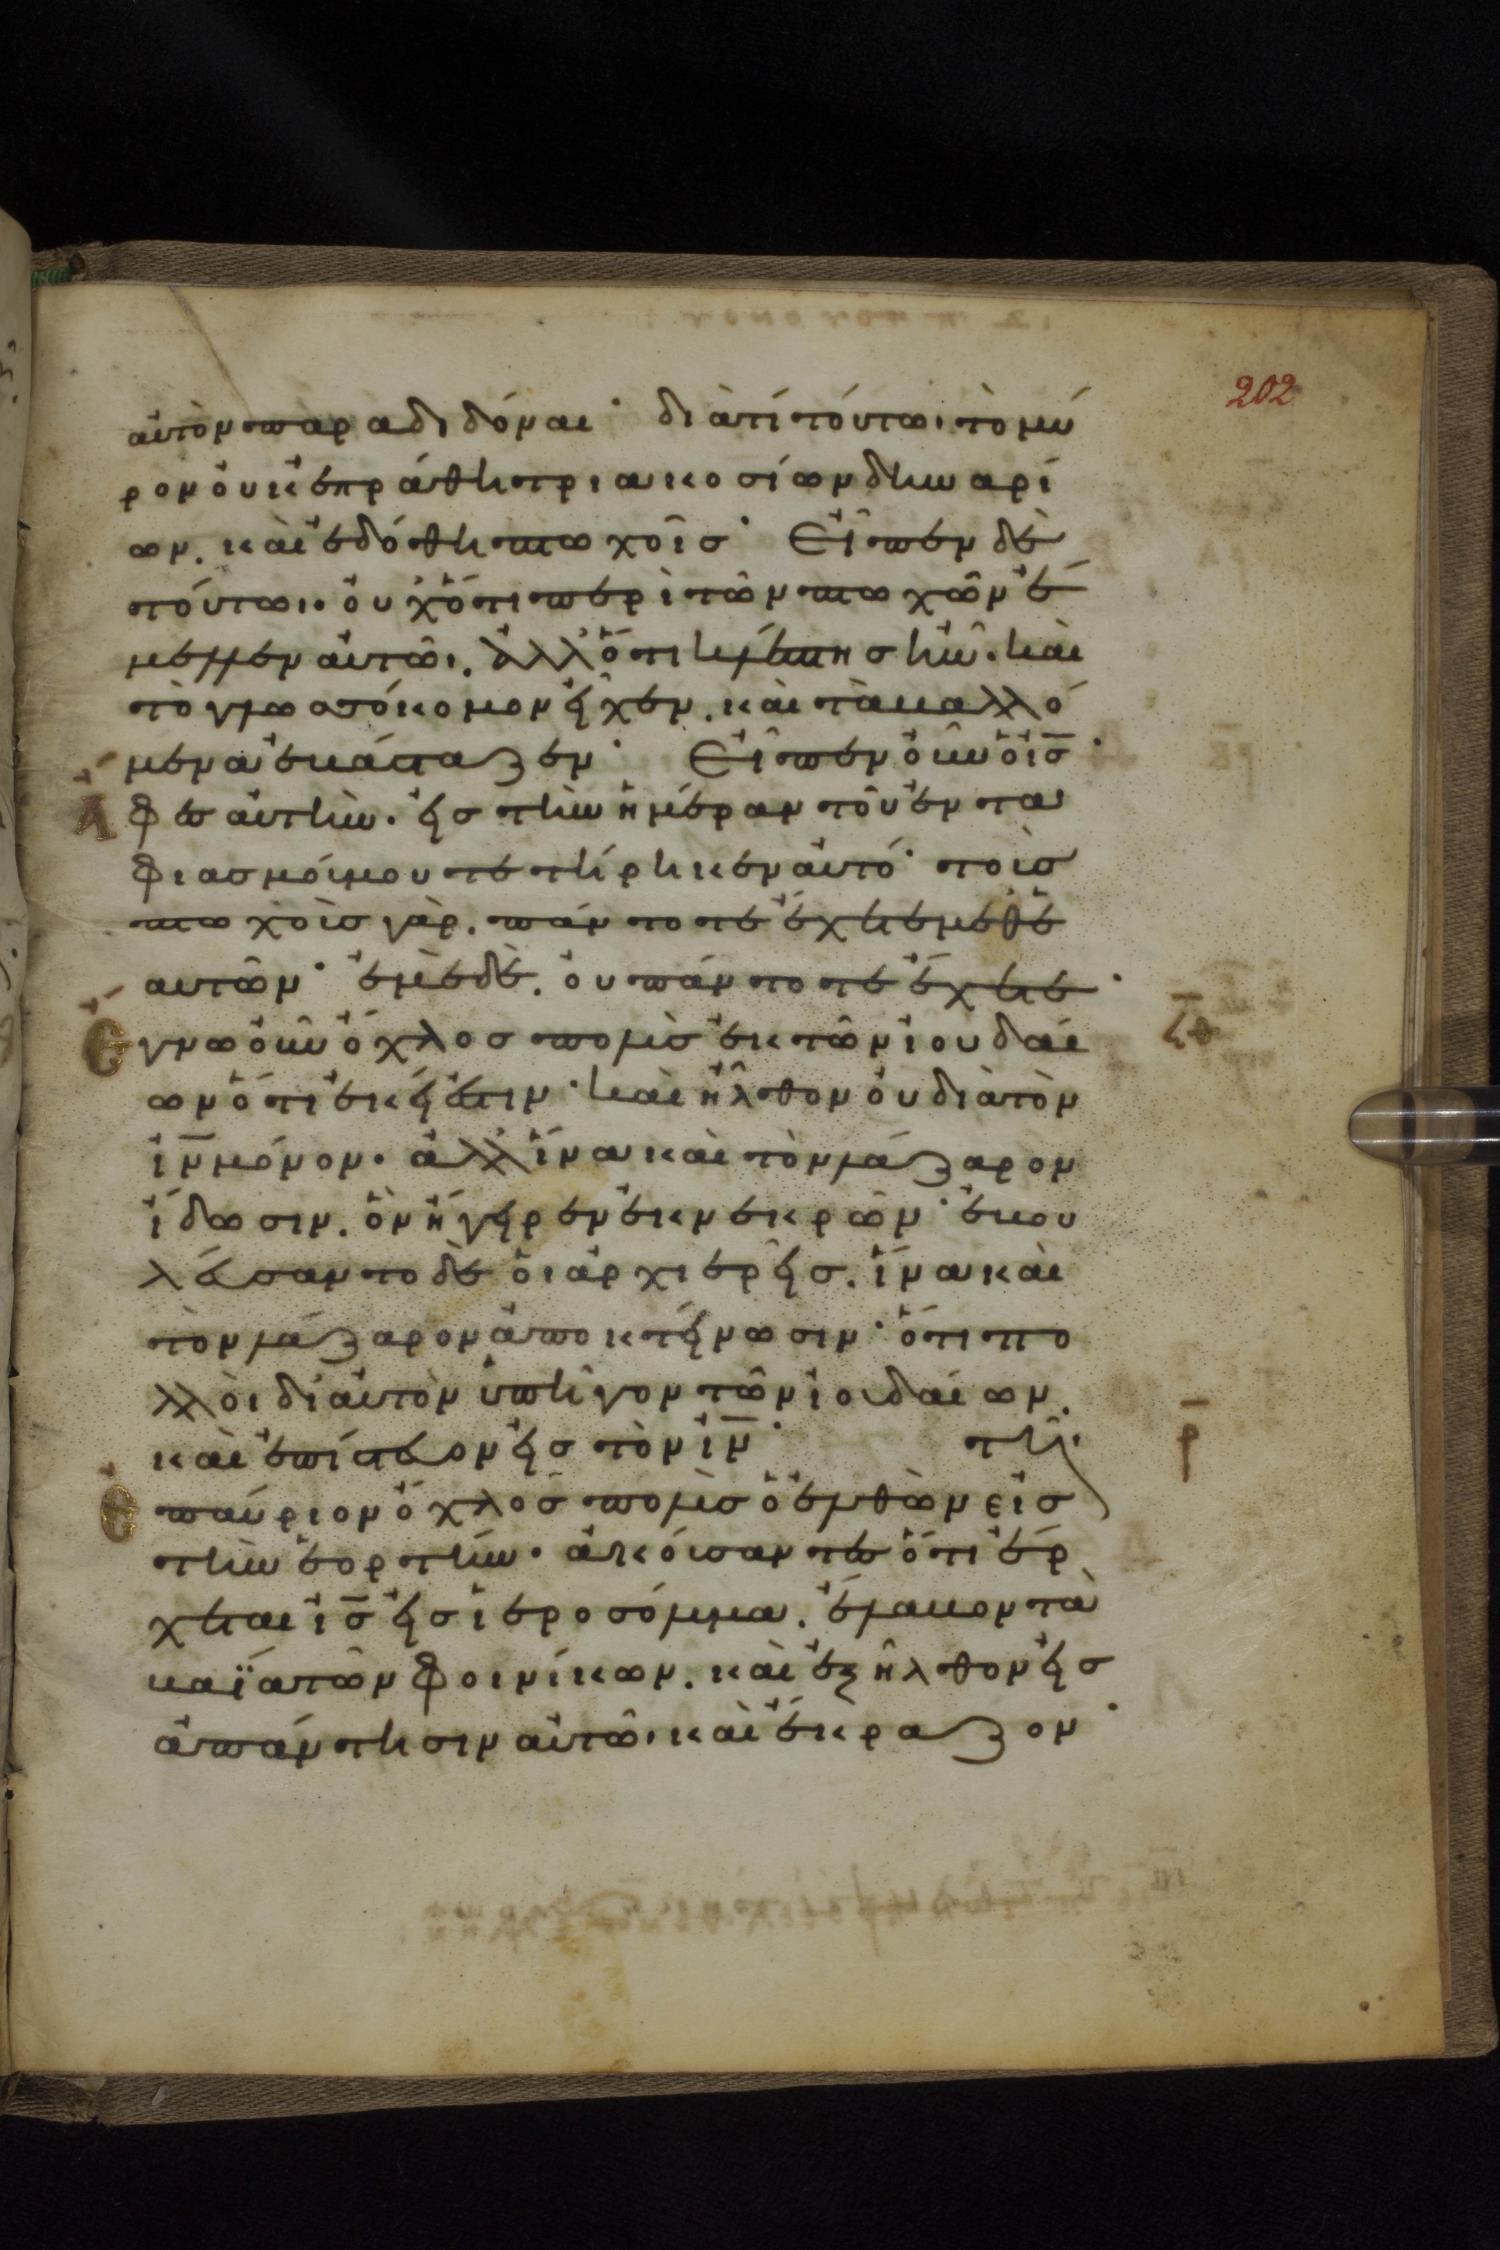 202
αὐτὸν παραδιδόναι· διατί τούτω, τὸ μύ
ρον οὐκ ἐπράθη τριακοσίων δηναρί
ων. καὶ ἐδόθη πτωχοῖς· Εἶπεν δὲ
τούτω. οὐχ ὅτι περὶ τῶν πτωχῶν ἔ
μελλεν αὐτῶ. ἀλλ' ὅτι κλέπτης ἦν. καὶ
τὸ γλωσσόκομον εἶχεν. καὶ τὰ βαλλό
μενα ἐβάσταζεν· Εἶπεν οὖν ὁ ις̅·
Ἄ φες αὐτήν. εἰς τὴν ἡμέραν τοῦ ἐντα
φιασμοῦ μου τετήρηκεν αὐτό· τοὺς
πτωχοὺς γὰρ. πάντοτε ἔχετε μεθ' ἑ
αυτῶν· ἐμὲ δὲ. οὐ πάντοτε ἔχετε·
Ἔ γνω οὖν ὄχλος πολὺς ἐκ τῶν ἰουδαί
ϟθ̅
ων ὅτι ἐκεῖ ἐστιν· καὶ ἦλθον οὐ διὰ τὸν
ιν̅ μόνον. ἀλλ' ἵνα καὶ τὸν λάζαρον
ἴδωσιν. ὃν ἤγειρεν ἐκ νεκρῶν· ἐβου
λεύσαντο δὲ οἱ ἀρχιερεῖς. ἵνα καὶ
τὸν λάζαρον ἀποκτείνωσιν· ὅτι πο
λλοὶ δι' αὐτὸν ὑπῆγον τῶν ἰουδαίων.
καὶ ἐπίστευον εἰς τὸν ιν̅· τῆ·
ρ̅
Ἐ παύριον ὄχλος πολὺς ὁ ἐλθὼν εἰς
τὴν ἑορτήν. ἀκούσαντες ὅτι ἔρ
χεται ις̅ εἰς ἱεροσόλυμα. ἔλαβον τὰ
βαΐα τῶν φοινίκων. καὶ ἐξῆλθον εἰς
ἀπάντησιν αὐτῶ, καὶ ἔκραζον·